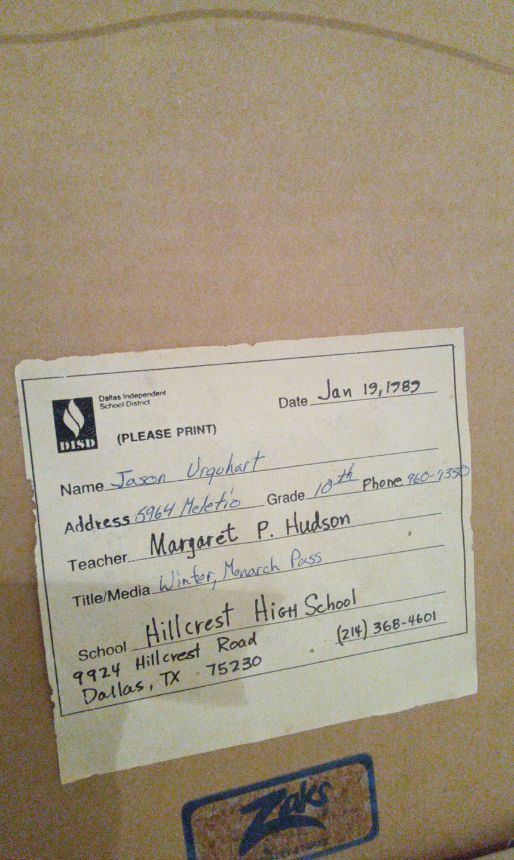 Dallas Independent
School District
DISD
Date Jan 19, 1989
(PLEASE PRINT)
Name Jason Urquhart
Address 5964 Meletio Grade 10th Phone 960-7350
Teacher Margaret P. Hudson
Title/Media Winter, Monarch Pass
School Hillcrest HIGH School
9924 Hillcrest Road (214) 368-4601
Dallas, TX 75230
Zaks